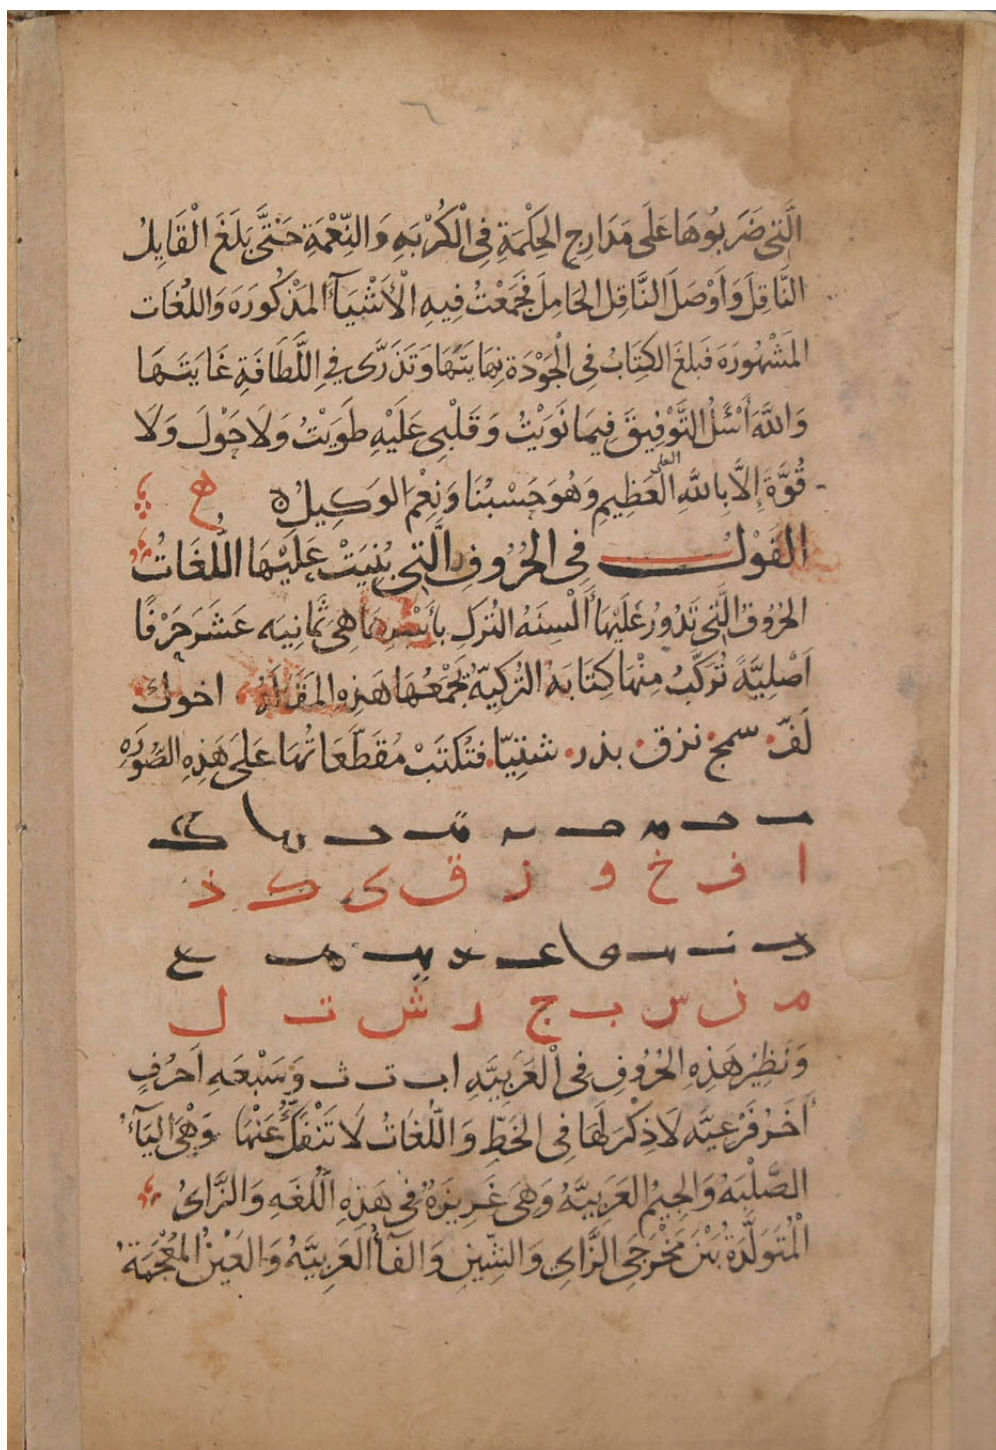 ٦
الَّتِي ضَرَبُوهَا عَلَى مَدَارِجِ الْحِكْمَةِ فِي الْكُرْبَةِ وَالنِّعْمَةِ حَتَّى بَلَغَ الْقَايِلُ
النَّاقِلَ وَاَوْصَلَ النَّاقِلُ الحَامِلَ فَجَمَعْتُ فِيهِ الْأَشْيَآءَ المَذْكُورَهَ وَاللُّغَات
المَشْهُورَهَ فَبَلَغَ الكِتَابُ فِى الْجَوْدَةِ نِهَايَتَهَا وَتَذَرَّى فِي اللَّطَافَةِ غَايَتَهَا
وَاللَّهَ أَسْئَلُ التَّوْفِيقَ فِيمَا نَوَيْتُ وَقَلْبِى عَلَيْهِ طَوَيْتُ وَلَا حَوْلَ وَلَا
قُوَّةَ إِلَّا بِاللَّهِ العلى العَظِيمِ وَهُوَ حَسْبُنَا وَنِعْمَ الوَكِيلُ ه
القَوْلُ فِى الحُرُوفِ الَّتِى بُنِيَتْ عَلَيْهَا اللُّغَاتُ
الحُرُوفُ الَّتِى تَدُورُ عَلَيْهَا أَلْسِنَهُ التُرْكِ بِأَسْرِهَا هِىَ ثَمَانِيَه عَشَرَ حَرْفًا
اَصْلِيَّةً تُرَكَّبُ مِنْهَا كِتَابَهُ التُرْكِيَّهِ تَجْمَعُهَا هَذِهِ المَقَالَهُ اخوك
لَفّ سمج نزق بذر شتيّا فتُكتَبْ مُقَطَّعَاتُهَا عَلَى هَذِهِ الصُّورَهِ
ا ف خ و ز ق ى ك ذ
م ن س ب ج ر ش ت ل
وَنَظِيرُ هَذِهِ الحُرُوفِ فِى الْعَرَبِيَّهِ ا ب ت ث وَسَبْعَهِ اَحرُفٍ
أُخَرُ فَرْعِيَّه لَا ذِكْرَ لَهَا فِى الخَطِّ وَاللُّغَاتُ لَا تَنْفَكُّ عَنْهَا وَهْىَ اليَآءُ
الصُّلْبَهُ وَالجِيمُ العَرَبِيَّهُ وَهِىَ غَرِيزَهٌ فِى هَذِهِ اللُّغَهِ وَالزَّاىُ
الْمُتَوَلَّدَةُ بَيْنَ مَخْرَجَىِ الزَّاىِ وَالشِّينِ وَالفَآءُ العَرَبِيَّهُ وَالغَيْنُ المُعْجَمَةُ